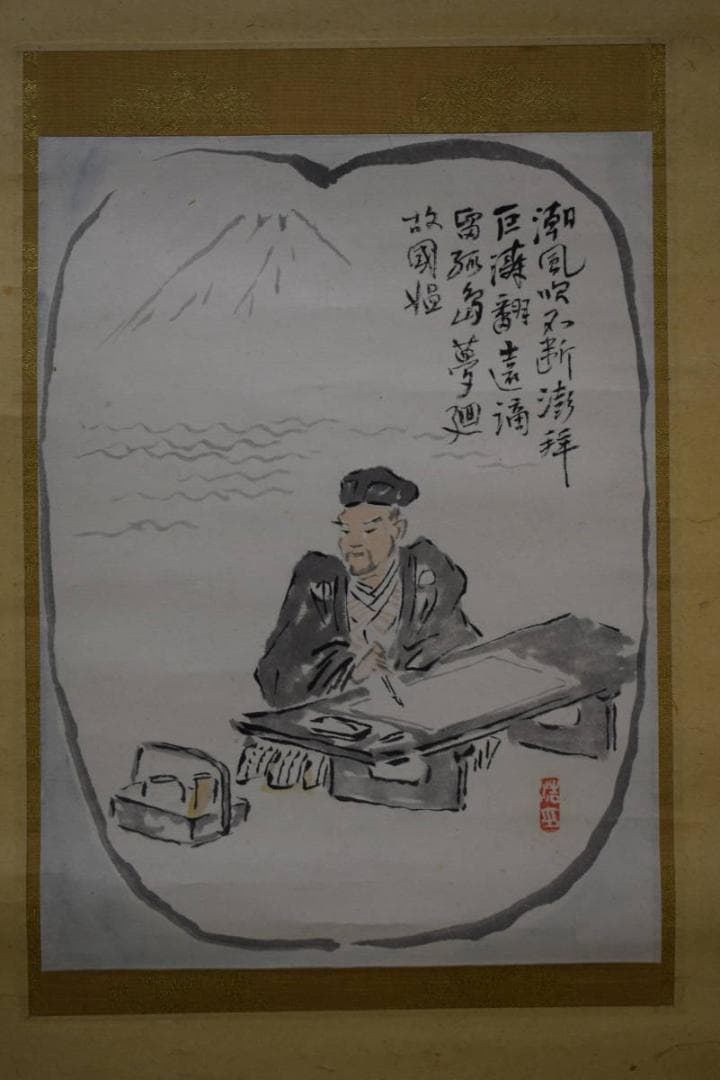 潮風吹不断澎拜
巨濤翻遠謫
留孤島夢廻
故國媼